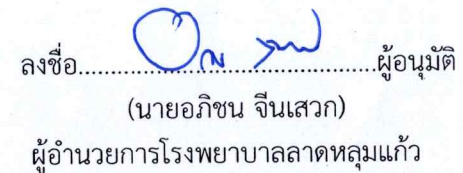 ลงชื่อ................................................ผู้อนุมัติ
(นายอภิชน จีนเสวก)
ผู้อำนวยการโรงพยาบาลลาดหลุมแก้ว